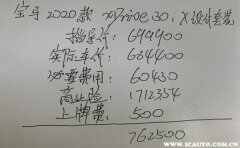 宝马2020款 xDrive30i X设计套装
指导价: 699900
实际车价: 664400
必要费用: 60430
商业险: 1712354
上牌费: 500
762500
WWW.SCAUTO.COM.CN